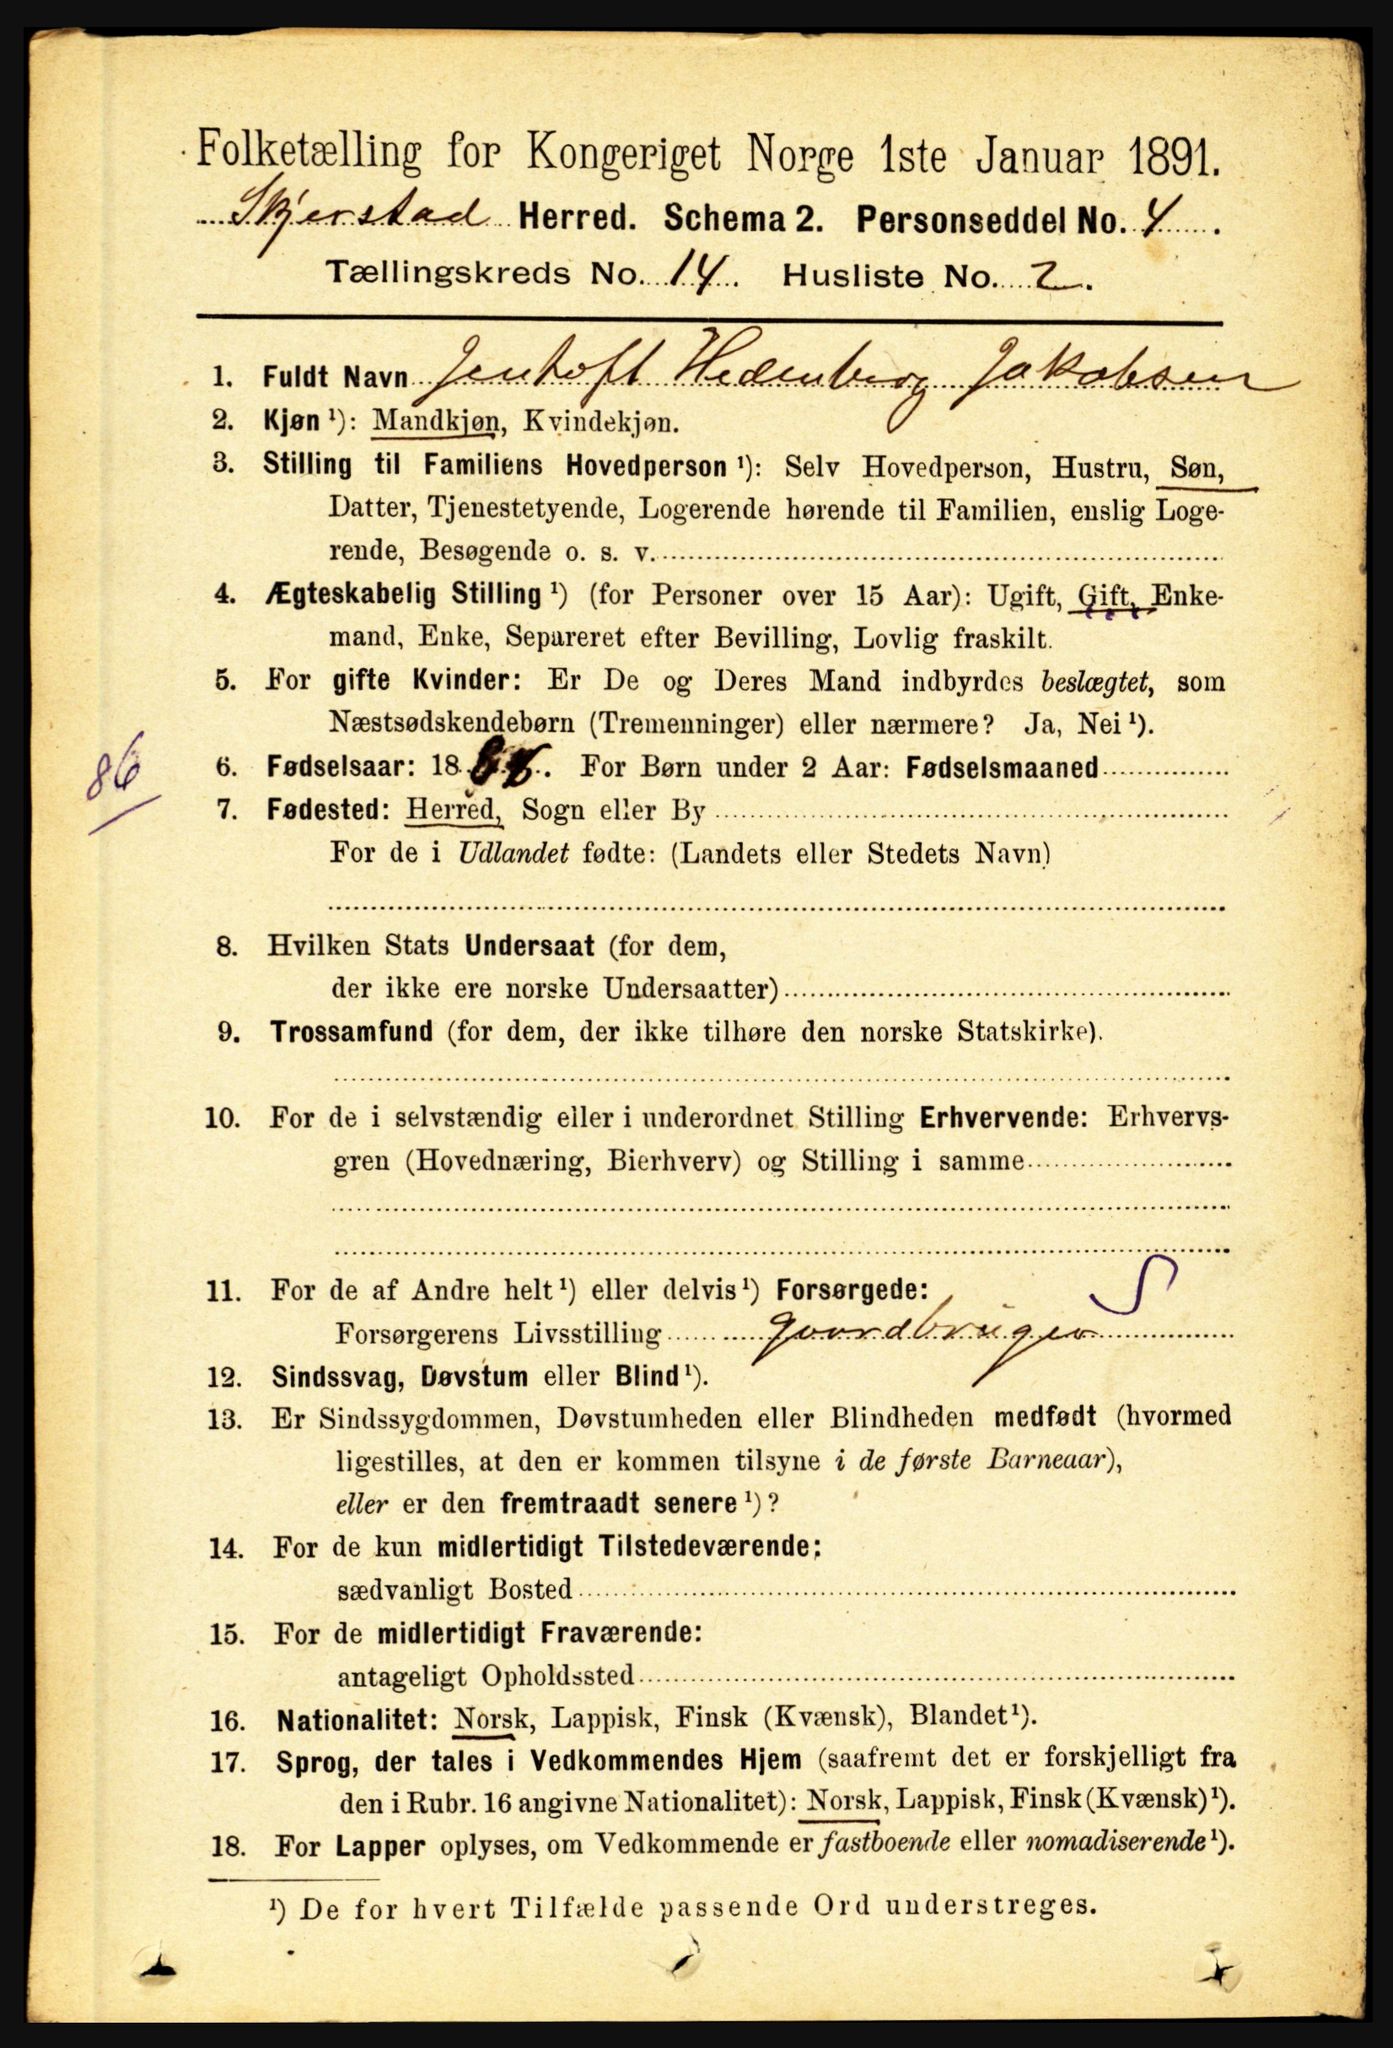 Folketælling for Kongeriget Norge 1ste Januar 1891.
Skjerstad Herred. Schema 2. Personseddel No. 4.
Tællingskreds No. 14. Husliste No. 2.
1. Fuldt Navn Jentoft Hedenberg Jakobsen
2. Kjøn ¹): Mandkjøn, Kvindekjøn.
3. Stilling til Familiens Hovedperson ¹): Selv Hovedperson, Hustru, Søn,
Datter, Tjenestetyende, Logerende hørende til Familien, enslig Loge-
rende, Besøgende o. s. v.
4. Ægteskabelig Stilling ¹) (for Personer over 15 Aar): Ugift, Gift, Enke-
mand, Enke, Separeret efter Bevilling, Lovlig fraskilt.
5. For gifte Kvinder: Er De og Deres Mand indbyrdes beslægtet, som
Næstsødskendebørn (Tremenninger) eller nærmere? Ja, Nei ¹).
86
6. Fødselsaar: 18 . For Børn under 2 Aar: Fødselsmaaned
7. Fødested: Herred, Sogn eller By
For de i Udlandet fødte: (Landets eller Stedets Navn)
8. Hvilken Stats Undersaat (for dem,
der ikke ere norske Undersaatter)
9. Trossamfund (for dem, der ikke tilhøre den norske Statskirke).
10. For de i selvstændig eller i underordnet Stilling Erhvervende: Erhvervs-
gren (Hovednæring, Bierhverv) og Stilling i samme
11. For de af Andre helt ¹) eller delvis ¹) Forsørgede: S
Forsørgerens Livsstilling gaardbruger
12. Sindssvag, Døvstum eller Blind ¹).
13. Er Sindssygdommen, Døvstumheden eller Blindheden medfødt (hvormed
ligestilles, at den er kommen tilsyne i de første Barneaar),
eller er den fremtraadt senere ¹)?
14. For de kun midlertidigt Tilstedeværende:
sædvanligt Bosted
15. For de midlertidigt Fraværende:
antageligt Opholdssted
16. Nationalitet: Norsk, Lappisk, Finsk (Kvænsk), Blandet ¹).
17. Sprog, der tales i Vedkommendes Hjem (saafremt det er forskjelligt fra
den i Rubr. 16 angivne Nationalitet): Norsk, Lappisk, Finsk (Kvænsk) ¹).
18. For Lapper oplyses, om Vedkommende er fastboende eller nomadiserende ¹).
¹) De for hvert Tilfælde passende Ord understreges.